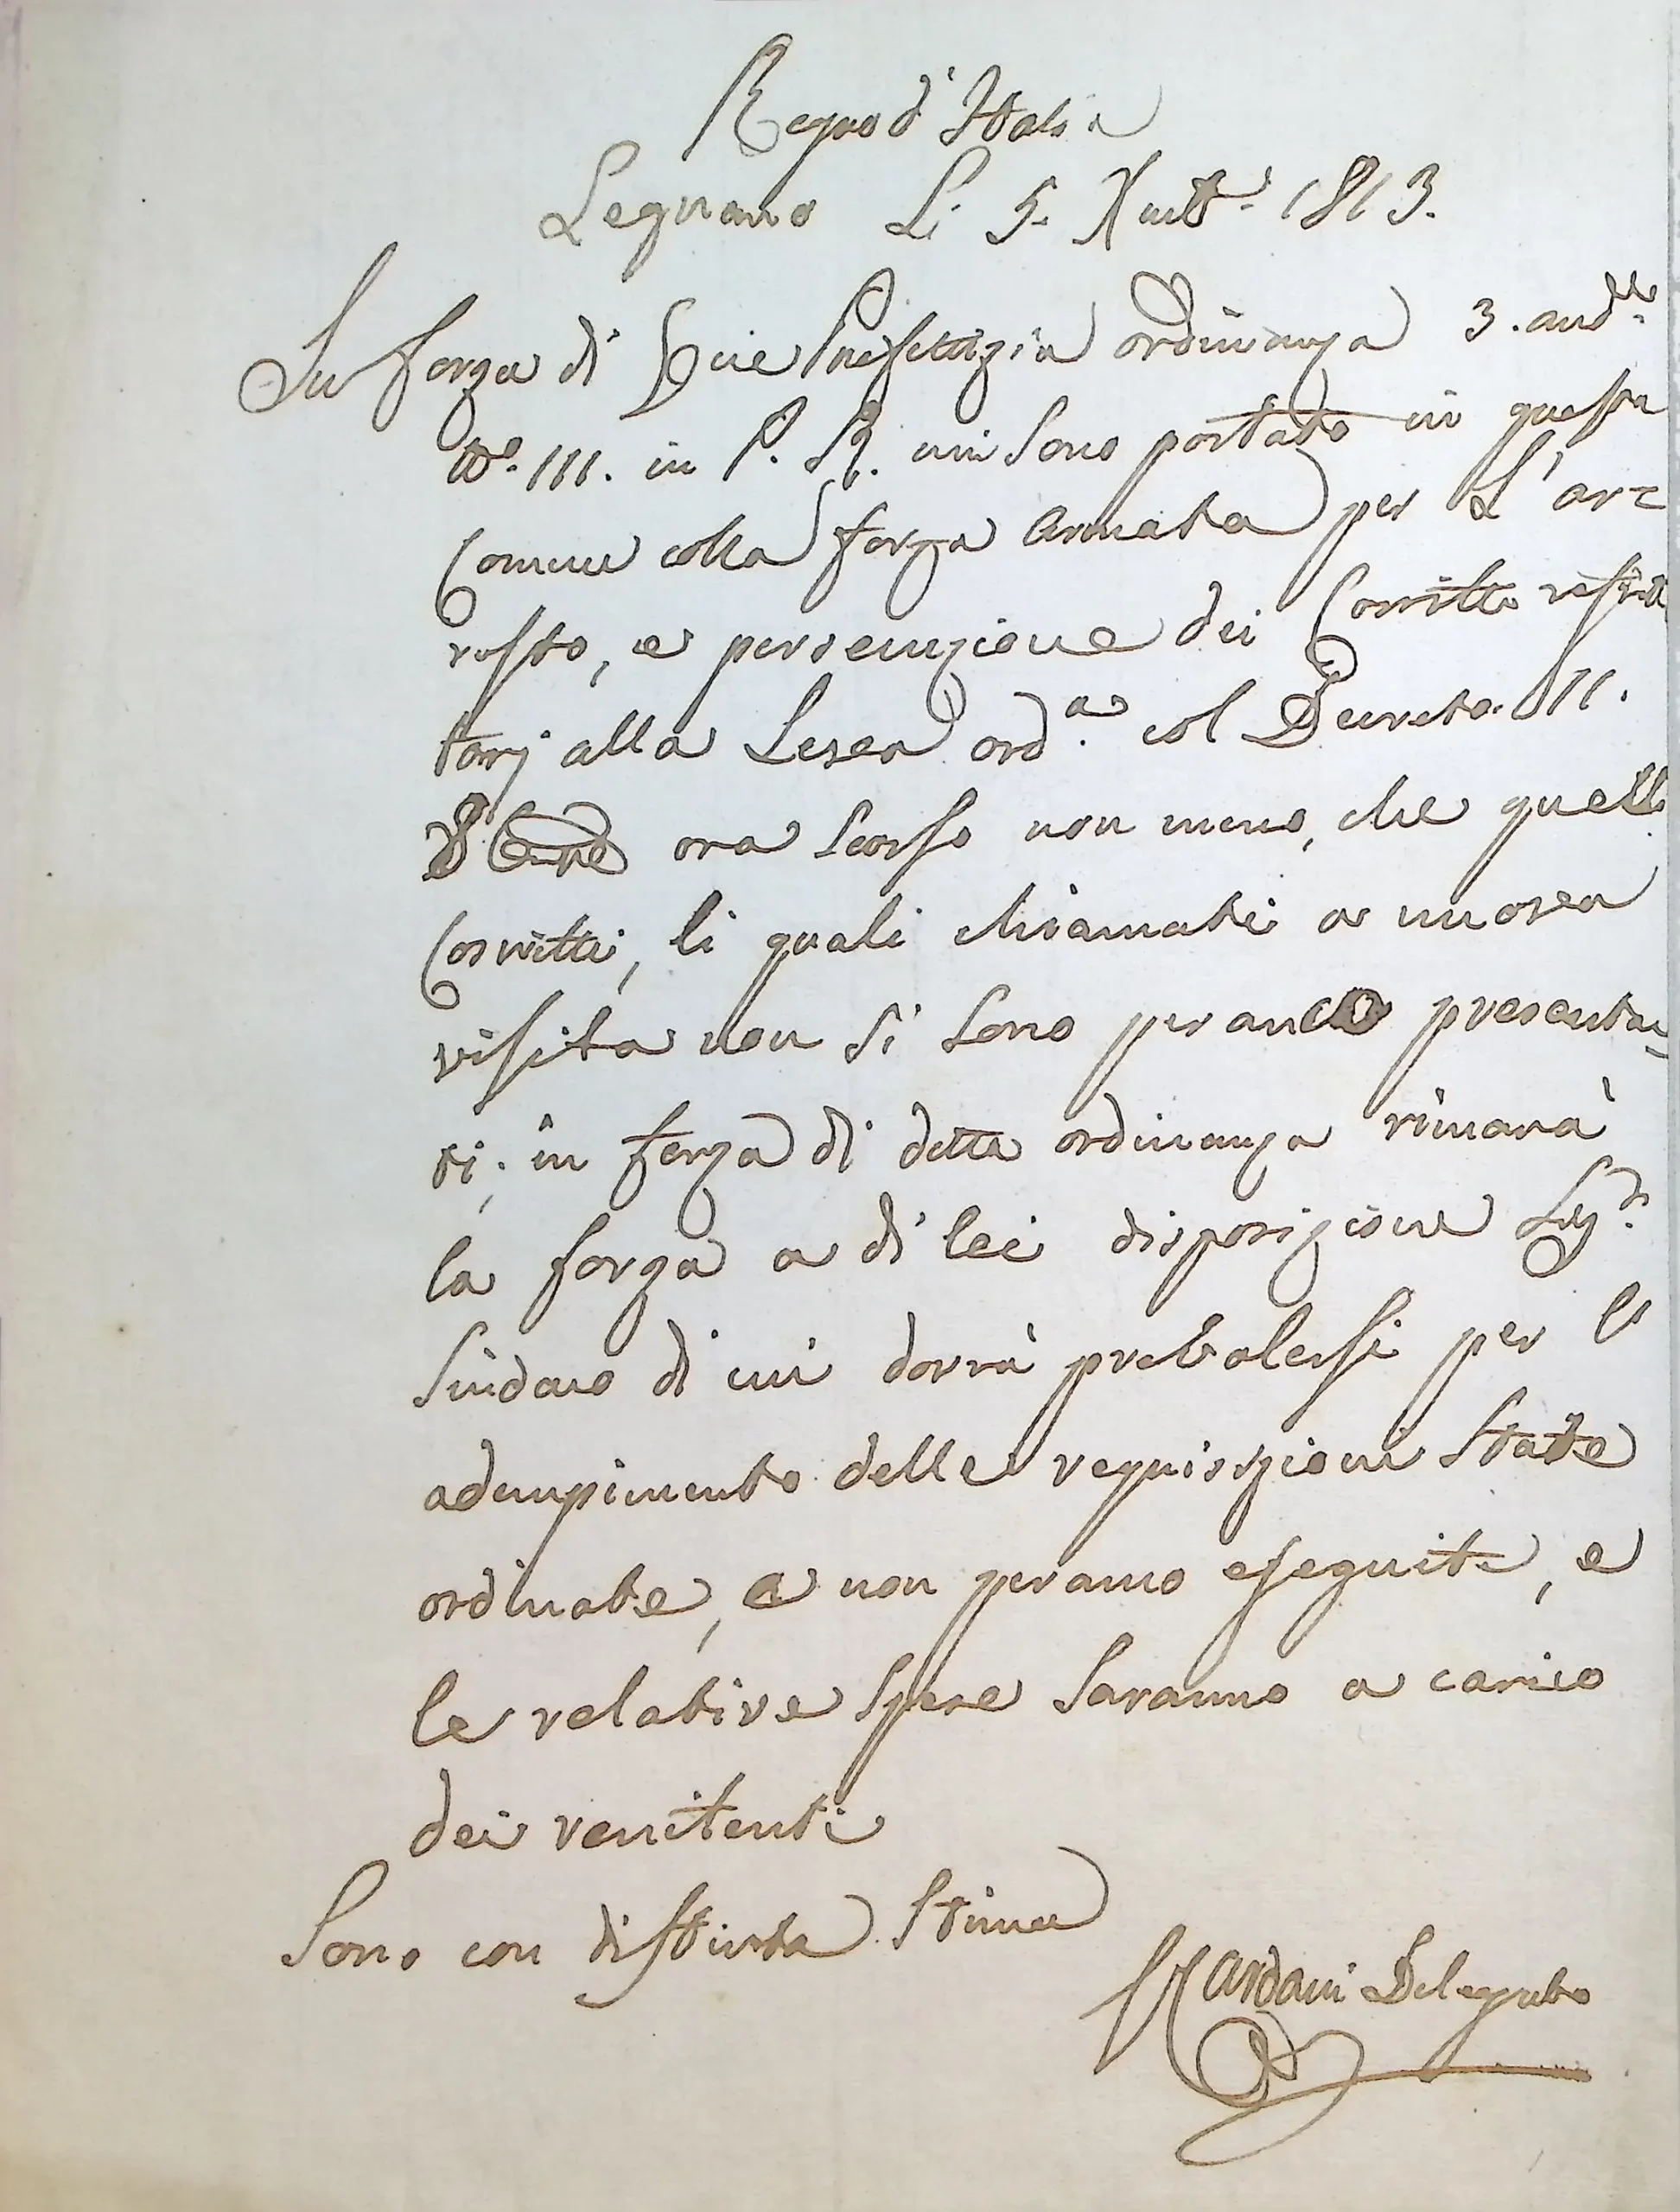 Regno d'Italia
Legnano Li 5. Xmb.e 1813.
In forza di Prefettizia ordinanza 3. and.te
N.o 111. in P. R. mi sono portato in questa
Comune colla forza armata per L'ar=
resto, e persecuzione dei Coscritti refrat
tarj alla Leva ord.a col Decreto 11.
8bre ora scorso non meno, che quelli
Coscritti, li quali chiamati a nuova
visita non si sono peranco presenta=
ti; in forza di detta ordinanza rimarà
la forza a di lei disposizione Sig.r
Sindaco di cui dovrà prevalersi per l'
adempimento delle requisizioni state
ordinate, e non peranco eseguite, e
le relative spese saranno a carico
dei renitenti
Sono con distinta stima
Mardani Delegato